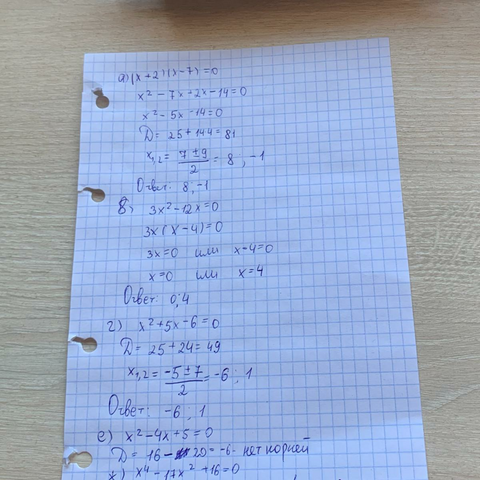 а) (x+2)(x-7)=0
x² - 7x + 2x - 14 = 0
x² - 5x - 14 = 0
D = 25 + 144 = 81
x₁,₂ = (7 ± 9)/2 = 8 ; -1
Ответ: 8; -1
б) 3x² - 12x = 0
3x(x-4) = 0
3x = 0 или x-4 = 0
x = 0 или x = 4
Ответ: 0; 4
г) x² + 5x - 6 = 0
D = 25 + 24 = 49
x₁,₂ = (-5 ± 7)/2 = -6 ; 1
Ответ: -6 ; 1
е) x² - 4x + 5 = 0
D = 16 - 20 = -6 - нет корней
ж) x⁴ - 17x² + 16 = 0